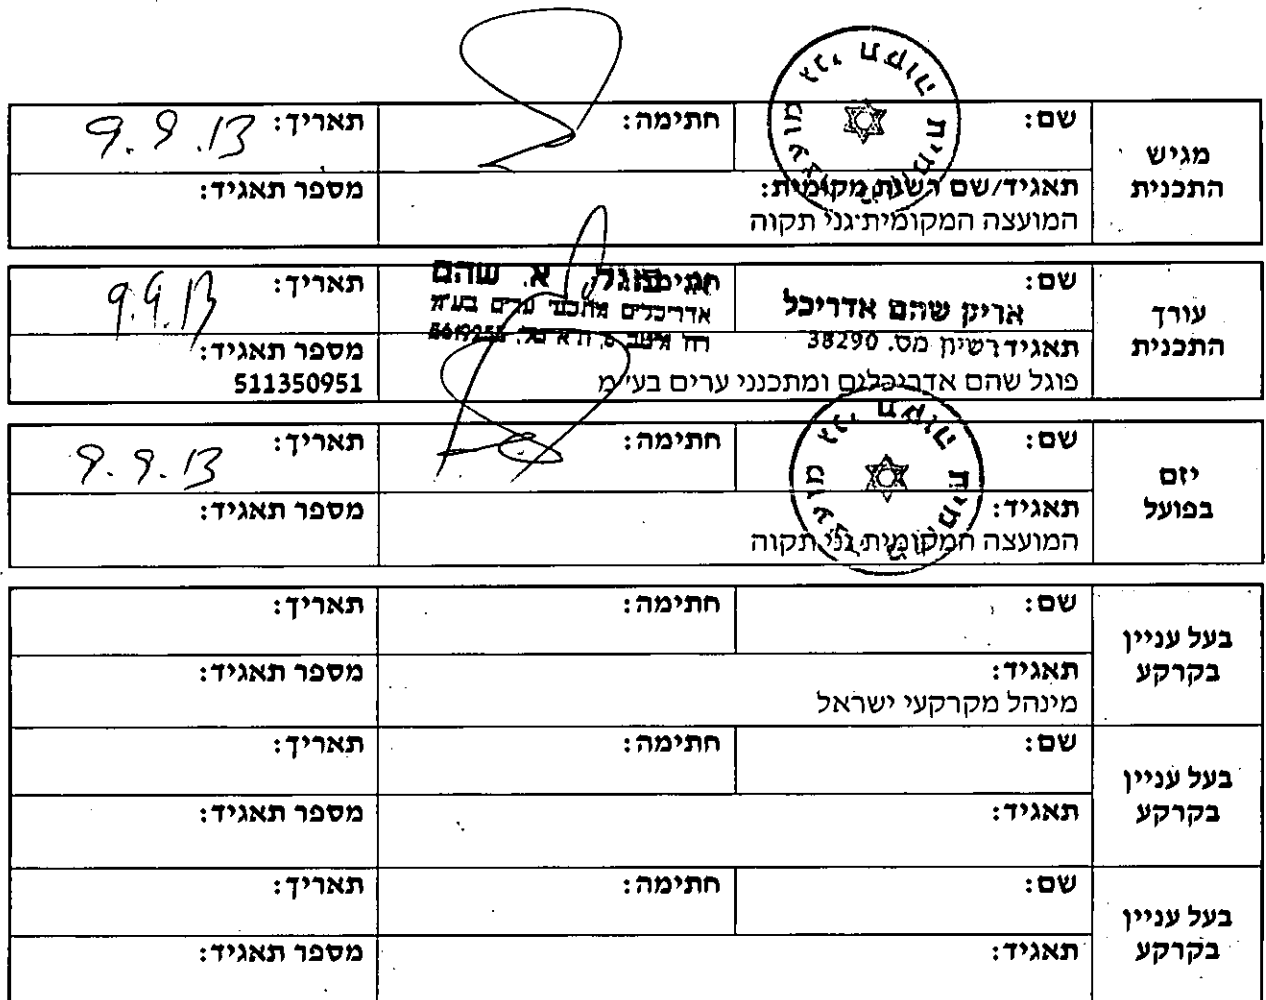 מועצה מקומית גני תקוה
מגיש
התכנית
שם:
חתימה:
תאריך: 9.9.13
תאגיד/שם רשות מקומית:
המועצה המקומית גני תקוה
מספר תאגיד:
עורך
התכנית
שם:
אריק שהם אדריכל
רשיון מס. 38290
חתימה:
א. שהם
אדריכלים מתכנני ערים בע"מ
תאריך: 9.9.13
תאגיד
פוגל שהם אדריכלים ומתכנני ערים בע"מ
מספר תאגיד:
511350951
מועצה מקומית גני תקוה
יזם
בפועל
שם:
חתימה:
תאריך: 9.9.13
תאגיד:
המועצה המקומית גני תקוה
מספר תאגיד:
בעל עניין
בקרקע
שם:
חתימה:
תאריך:
תאגיד:
מינהל מקרקעי ישראל
מספר תאגיד:
בעל עניין
בקרקע
שם:
חתימה:
תאריך:
תאגיד:
מספר תאגיד:
בעל עניין
בקרקע
שם:
חתימה:
תאריך:
תאגיד:
מספר תאגיד: